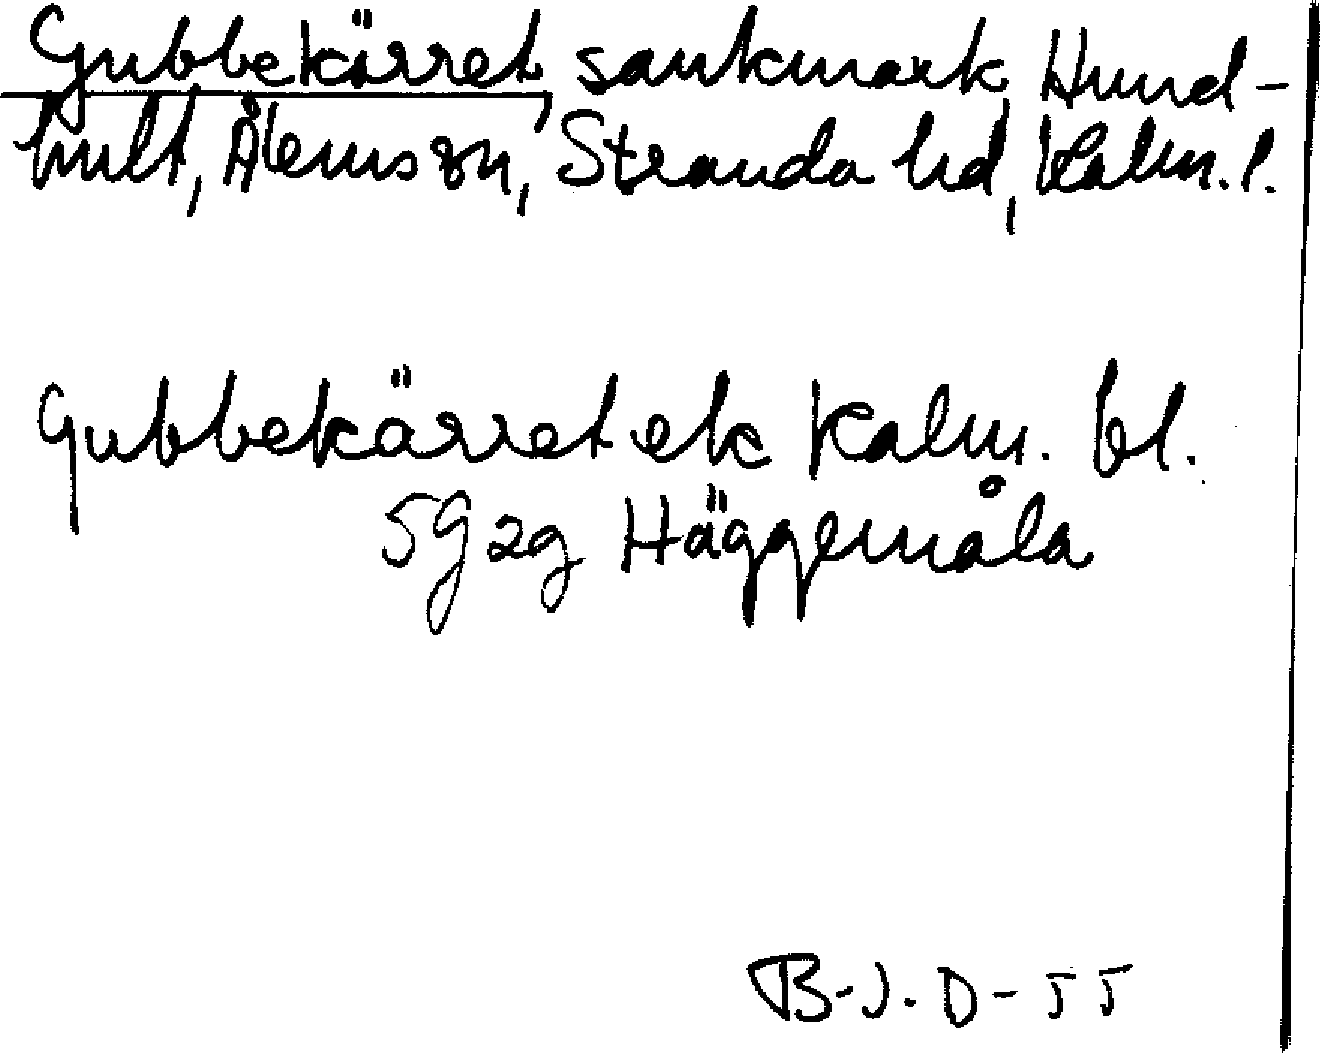 Gubbekärret, sankmark, Hund-
hult, Ålems sn, Stranda hd, Kalm. l.
Gubbekärret ek Kalm. bl.
5G 2g Häggemåla
B-J. D-55